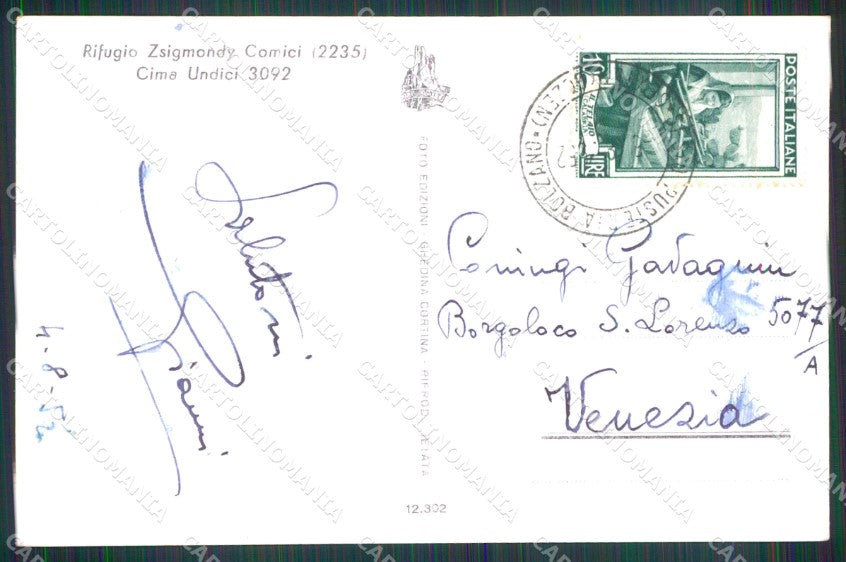 Rifugio Zsigmondy Comici (2235)
Cima Undici 3092
Salutoni
Gianni
4-8-52
FOTO EDIZIONI GHEDINA CORTINA - RIPROD. VIETATA
12.302
POSTE ITALIANE
10
LIRE
IL TELAIO
CALABRIA
PUSTERIA BOLZANO
Borgoloco S. Lorenzo 5077/A
Venezia
CARTOLINOMANIA